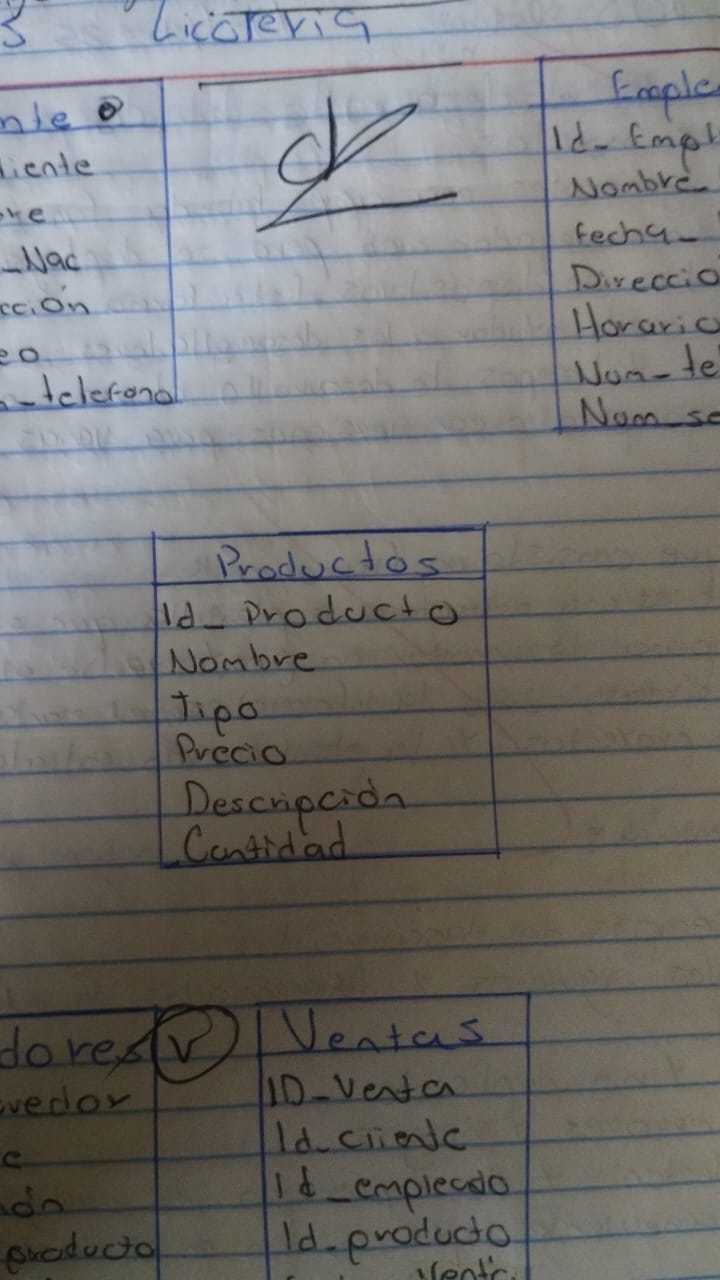 Licoreria
nte
liente
re
_Nac
cción
eo
_telefono
Emple
Id_Empl
Nombre_
fecha_
Direccio
Horario
Num_te
Num_se
Productos
Id_Producto
Nombre
Tipo
Precio
Descripción
Cantidad
dores
vedor
producto
V
Ventas
ID_Venta
Id_cliente
Id_empleado
Id_producto